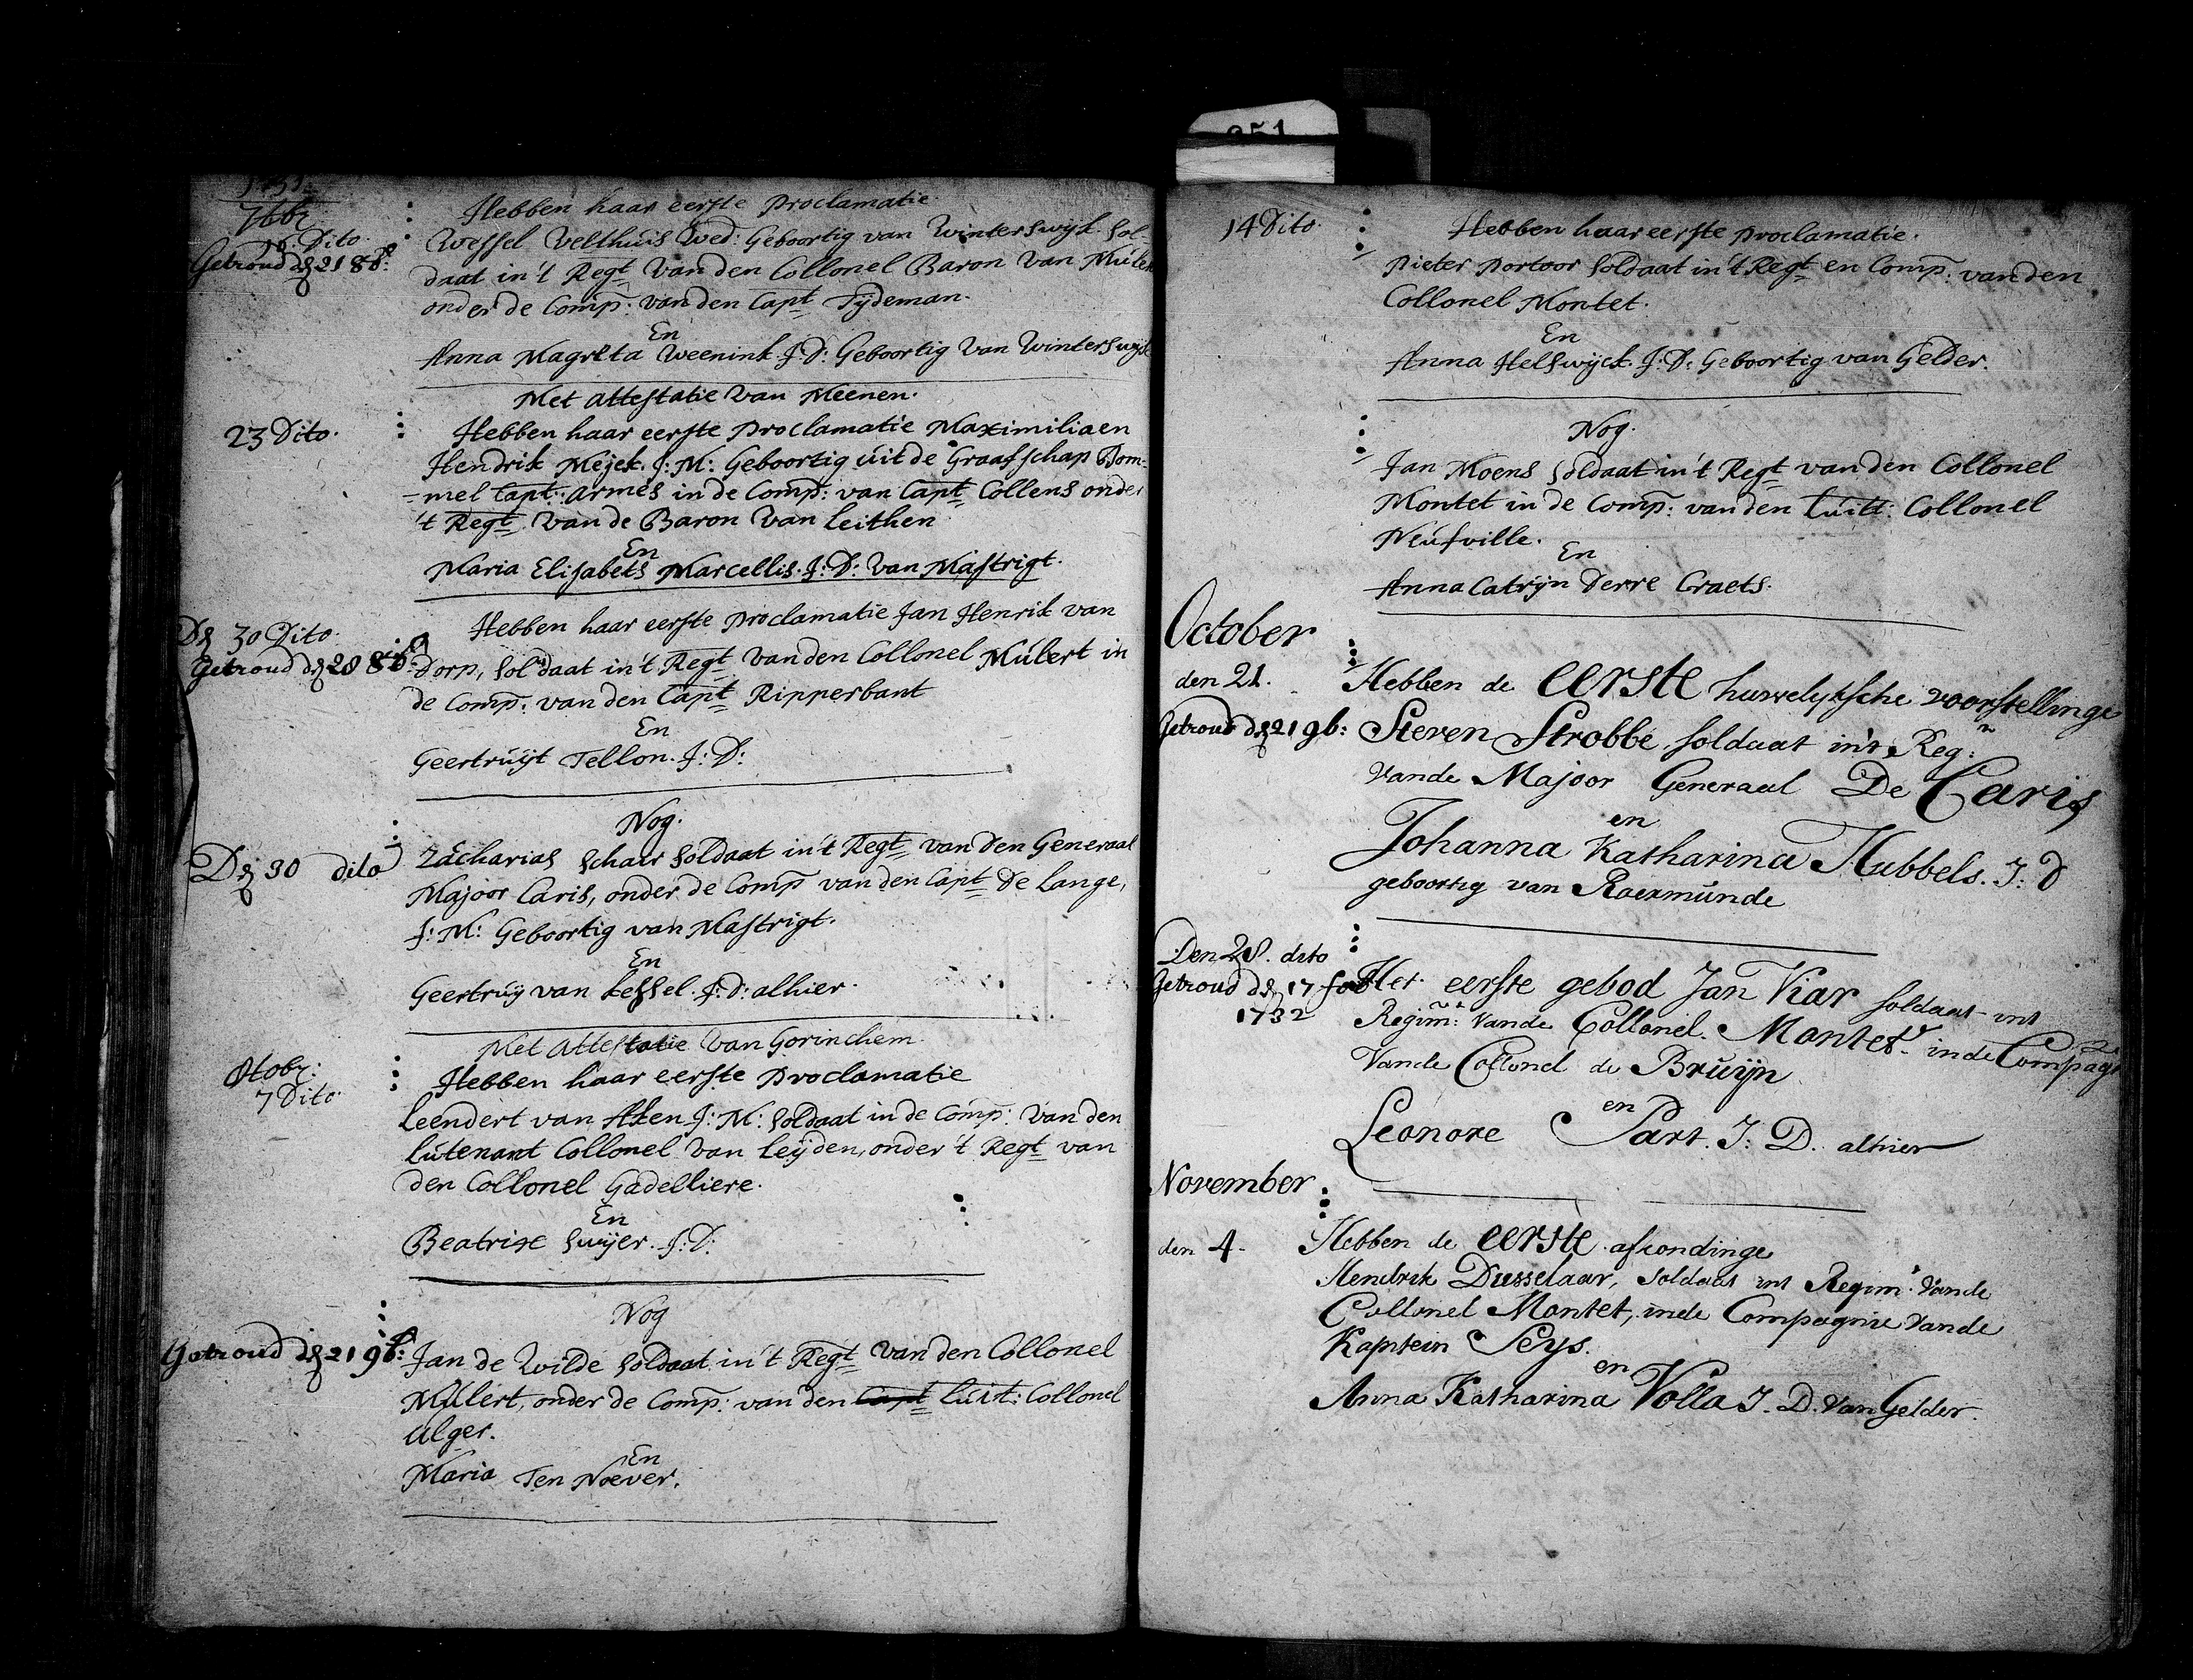 351
1731
7tbr
16. Dito.
Getroud dẽ 21 8b:
Hebben haar eerste proclamatie
Wessel Velthuis Wed: Geboortig van Winterswijk. Sol-
daat in 't Regt van den Collonel Baron van Muler
onder de Comp: van den Capt Tijdeman.
En
Anna Magreta Weenink. J: D: Geboortig van Winterswijk
Met attestatie van Meenen.
23 Dito.
Hebben haar eerste proclamatie Maximiliaen
Hendrik Meijek. J: M: Geboortig uit de Graafschap Bom-
=mel Capt: armes in de Comp: van Capt Collens onder
't Regt van de Baron van Leithen
En
Maria Elisabets Marcellis. J: D: van Mastrigt.
Dẽ 30 Dito.
Getroud dẽ 28 8b:
Hebben haar eerste proclamatie Jan Henrik van
Dorp, Soldaat in 't Regt van den Collonel Mulert in
de Comp: van den Capt Ripperbant
En
Geertruijt Tellon. J: D:
Nog.
Dẽ 30 dito
Zacharias Schair Soldaat in 't Regt van den Generaal
Majoor Caris, onder de Comp van den Capt De Lange,
J: M: Geboortig van Mastrigt.
En
Geertruy van Lessel. J: D: alhier.
Met attestatie van Gorinchem
Otobr:
7 Dito.
Hebben haar eerste proclamatie
Leendert van Aken J: M: Soldaat in de Comp: van den
Lutenant Collonel van Leijden, onder 't Regt van
den Collonel Gadelliere.
En
Beatrixe Swijer. J: D:
Nog
Getroud dẽ 21 9b:
Jan de Wilde Soldaat in 't Regt van den Collonel
Mulert, onder de Comp: van den Capt Luit: Collonel
Alger.
En
Maria Ten Noever.
14 Dito.
Hebben haar eerste proclamatie.
Pieter Portoor Soldaat in 't Regt en Comp: van den
Collonel Montet.
En
Anna Helswijck. J: D: Geboortig van Gelder.
Nog.
Jan Moens Soldaat in 't Regt van den Collonel
Montet in de Comp: van den Luitt: Collonel
Neufville.
En
Anna Catrijn Derre Craets.
October
den 21.
Getroud dẽ 21 9b:
Hebben de eerste huwelyksche voorstellinge
Steven Strobbe, soldaat int Reg:
vande Majoor Generaal De Caris
en
Johanna Katharina Hubbels. J: D
geboortig van Roermunde
Den 28. dito
Getroud dẽ 17
1732
Het eerste gebod Jan Kar soldaat int
Regim: vande Collonel. Montet. inde Compag
Vande Collonel de Bruijn
en
Leonore Part. J: D. alhier
November
den 4.
Hebben de eerste afcondinge
Hendrik Dusselaar, soldaat int Regim. vande
Collonel Montet, inde Compagnie vande
Kaptein Seys.
en
Anna Katharina Volla J. D. van Gelder.